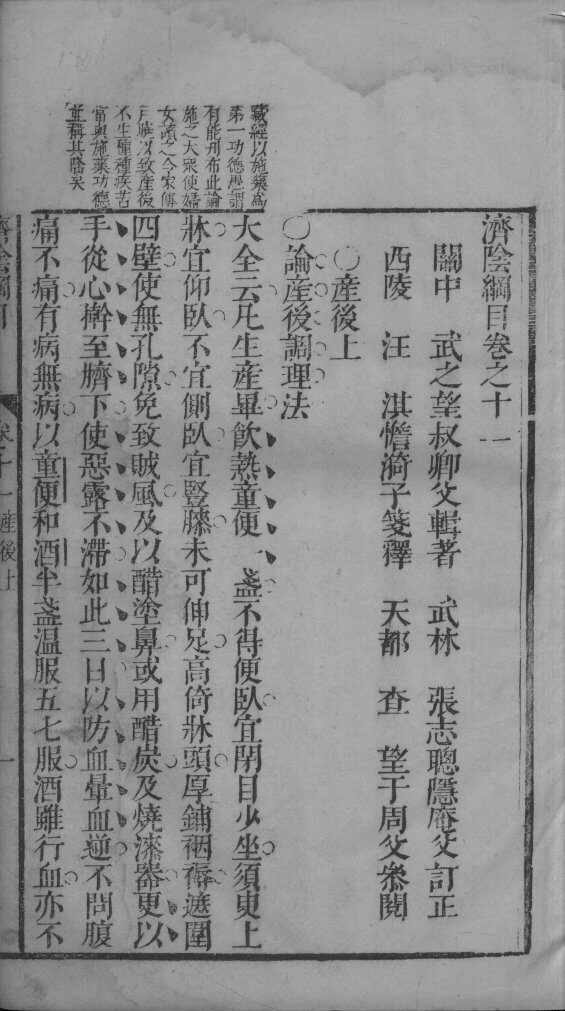 濟陰綱目卷之十一
關中 武之望叔卿父輯著 武林 張志聰隱庵父訂正
西陵 汪 淇憺漪子箋釋 天都 查 望于周父叅閱
〇產後上
〇論產後調理法
大全云凡生產畢飲熱童便一盞不得便臥宜閉目少坐須臾上
牀宜仰臥不宜側臥宜豎膝未可伸足高倚牀頭厚鋪裀褥遮圍
四壁使無孔隙免致賊風及以醋塗鼻或用醋炭及燒漆器更以
手從心擀至臍下使惡露不滯如此三日以防血暈血逆不問腹
痛不痛有病無病以童便和酒半盞温服五七服酒雖行血亦不
藏經以施藥爲
第一功德愚謂
有能刋布此論
施之大眾使婦
女讀之令家傳
戶曉以致產後
不生種種疾苦
當與施藥功德
並稱其隆矣
濟陰綱目
卷十一產後上
一